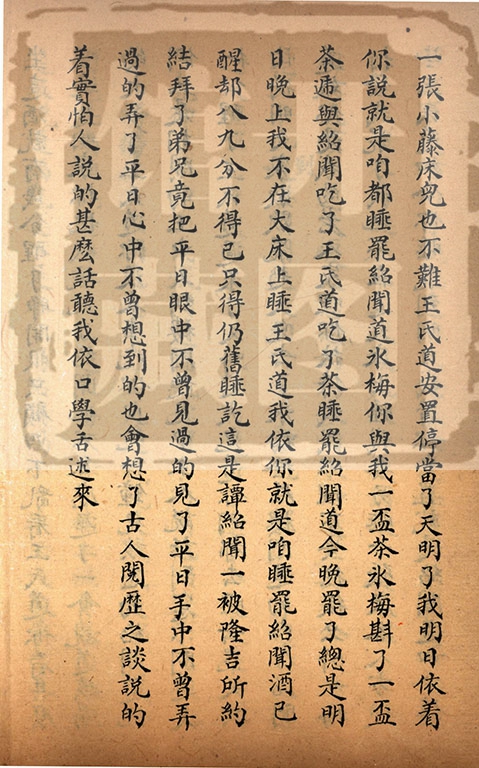 一張小藤床兒也不難王氏道安置停當了天明了我明日依着
你說就是咱都睡罷紹聞道氷梅你與我一盃茶氷梅斟了一盃
茶遞與紹聞吃了王氏道吃了茶睡罷紹聞道今晚罷了總是明
日晚上我不在大床上睡王氏道我依你就是咱睡罷紹聞酒已
醒却八九分不得已只得仍舊睡訖這是譚紹聞一被隆吉所約
結拜了弟兄竟把平日眼中不曾見過的見了平日手中不曾弄
過的弄了平日心中不曾想到的也會想了古人閱歷之談說的
着實怕人說的甚麽話聽我依口學舌述來